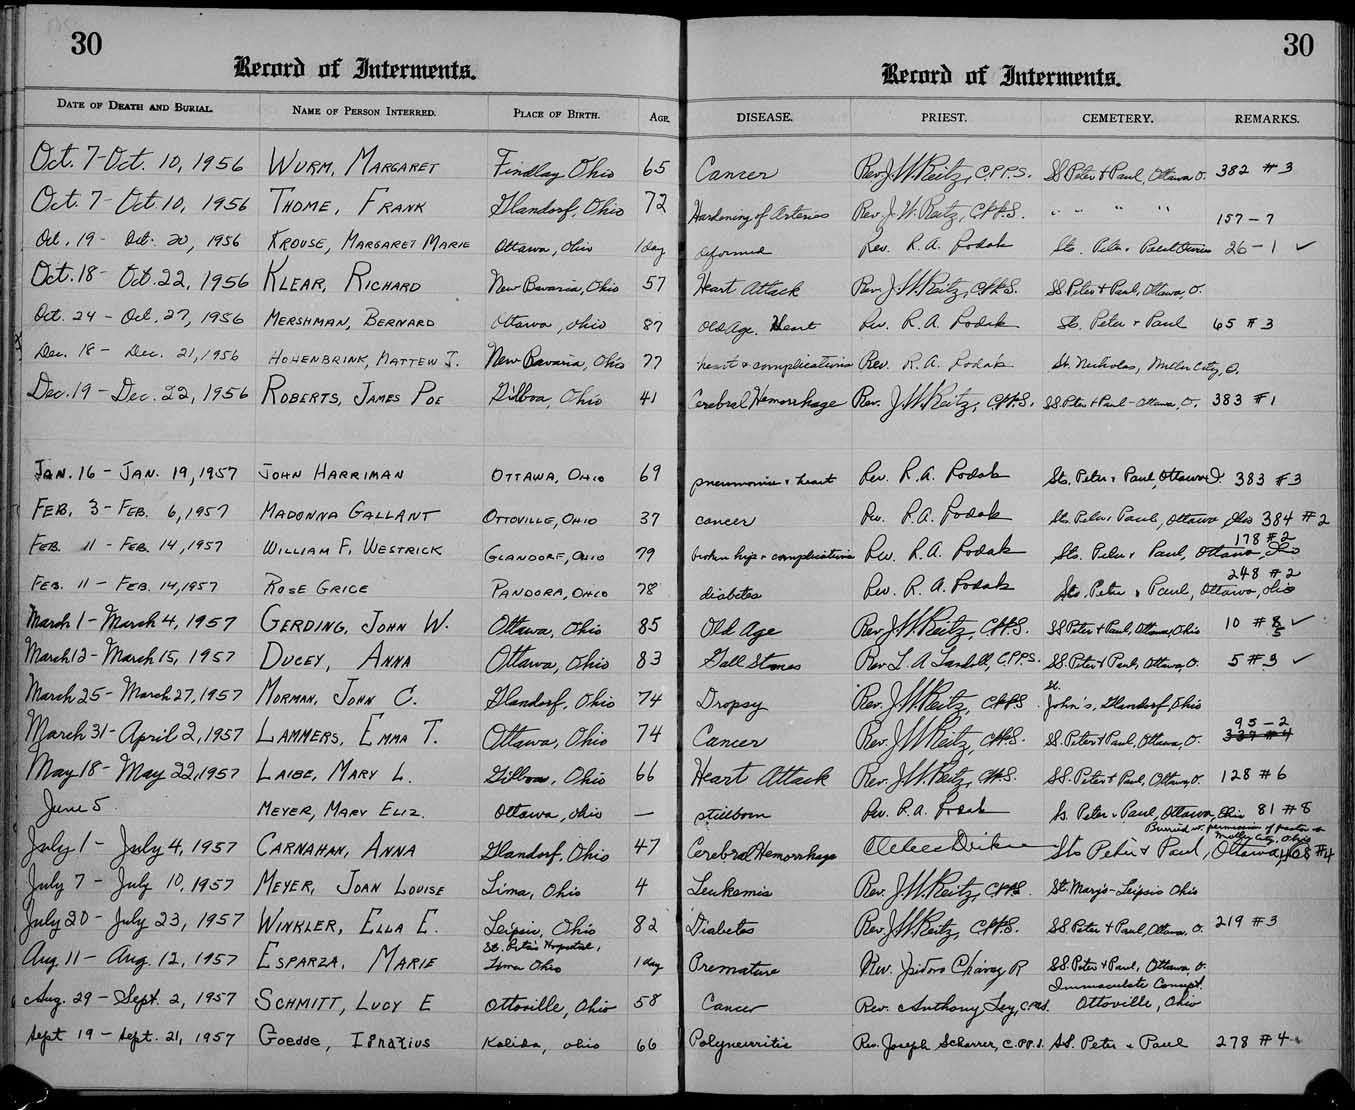 30
30
Record of Interments.
Record of Interments.
DATE OF DEATH AND BURIAL. NAME OF PERSON INTERRED. PLACE OF BIRTH. AGE. DISEASE. PRIEST. CEMETERY. REMARKS.
Oct. 7-Oct. 10, 1956 WURM, MARGARET Findlay Ohio 65 Cancer Rev. J. W. Reitz, C.PP.S. SS Peter & Paul, Ottawa O. 382 #3
Oct. 7 - Oct. 10, 1956 THOME, FRANK Glandorf, Ohio 72 Hardening of Arteries Rev. J. W. Reitz, C.PP.S. " " " " 157-7
Oct. 19 - Oct. 20, 1956 KROUSE, MARGARET MARIE Ottawa, Ohio 1 day deformed Rev. R. A. Dodak Sts. Peter & Paul 26-1 ✓
Oct. 18 - Oct. 22, 1956 KLEAR, RICHARD New Bavaria, Ohio 57 Heart Attack Rev. J. W. Reitz, C.PP.S. SS Peter & Paul, Ottawa, O.
Oct. 24 - Oct. 27, 1956 MERSHMAN, BERNARD Ottawa, Ohio 87 Old Age. Heart Rev. R. A. Dodak Sts. Peter & Paul 65 #3
Dec. 18 - Dec. 21, 1956 HOHENBRINK, MATTEW J. New Bavaria, Ohio 77 heart & complications Rev. R. A. Dodak St. Nicholas, Miller City, O.
Dec. 19 - Dec. 22, 1956 ROBERTS, JAMES POE Gilboa, Ohio 41 Cerebral Hemorrhage Rev. J. W. Reitz, C.PP.S. SS Peter & Paul - Ottawa, O. 383 #1
JAN. 16 - JAN. 19, 1957 JOHN HARRIMAN OTTAWA, OHIO 69 pneumonia & heart Rev. R. A. Dodak Sts. Peter & Paul, Ottawa O. 383 #3
FEB. 3 - FEB. 6, 1957 MADONNA GALLANT OTTOVILLE, OHIO 37 cancer Rev. R. A. Dodak Sts. Peter & Paul, Ottawa, Ohio 384 #2
178 #2
FEB. 11 - FEB. 14, 1957 WILLIAM F. WESTRICK GLANDORF, OHIO 79 broken hip & complications Rev. R. A. Dodak Sts. Peter & Paul, Ottawa, Ohio
248 #2
FEB. 11 - FEB. 14, 1957 ROSE GRICE PANDORA, OHIO 78 diabetes Rev. R. A. Dodak Sts. Peter & Paul, Ottawa, Ohio
March 1 - March 4, 1957 GERDING, JOHN W. Ottawa, Ohio 85 Old Age Rev. J. W. Reitz, C.PP.S. SS Peter & Paul, Ottawa, Ohio 10 #8 ✓
5
March 12 - March 15, 1957 DUCEY, ANNA Ottawa, Ohio 83 Gall Stones Rev. L. A. C.PP.S. SS. Peter & Paul, Ottawa, O. 5 #3 ✓
St.
March 25 - March 27, 1957 MORMAN, JOHN C. Glandorf, Ohio 74 Dropsy Rev. J. W. Reitz, C.PP.S. John's, Glandorf, Ohio
95-2
March 31 - April 2, 1957 LAMMERS, EMMA T. Ottawa, Ohio 74 Cancer Rev. J. W. Reitz, C.PP.S. SS. Peter & Paul, Ottawa, O. 337 #4
May 18 - May 22, 1957 LAIBE, MARY L. Gilboa, Ohio 66 Heart Attack Rev. J. W. Reitz, C.PP.S. SS. Peter & Paul, Ottawa O. 128 #6
June 5 MEYER, MARY ELIZ. Ottawa, Ohio — stillborn Rev. R. A. Dodak Ss. Peter & Paul, Ottawa, Ohio 81 #8
Burried w. permission of pastor
Miller City, Ohio
July 1 - July 4, 1957 CARNAHAN, ANNA Glandorf, Ohio 47 Cerebral Hemorrhage Sts Peter & Paul, Ottawa, 408 #4
July 7 - July 10, 1957 MEYER, JOAN LOUISE Lima, Ohio 4 Leukemia Rev. J. W. Reitz, C.PP.S. St. Mary's - Leipsic Ohio
July 20 - July 23, 1957 WINKLER, ELLA E. Leipsic, Ohio 82 Diabetes Rev. J. W. Reitz, C.PP.S. SS Peter & Paul, Ottawa, O. 219 #3
St. Rita's Hospital,
Aug. 11 - Aug. 12, 1957 ESPARZA, MARIE Lima Ohio 1 day Premature Rev. Isidoro Chavez R SS. Peter & Paul, Ottawa, O.
Immaculate Concept.
Aug. 29 - Sept. 2, 1957 SCHMITT, LUCY E Ottoville, Ohio 58 Cancer Rev. Anthony Ottoville, Ohio
Sept 19 - Sept. 21, 1957 Goedde, Ignatius Kalida, Ohio 66 Polyneuritis Rev. Joseph Scharrer, C.PP.S. SS. Peter & Paul 278 #4